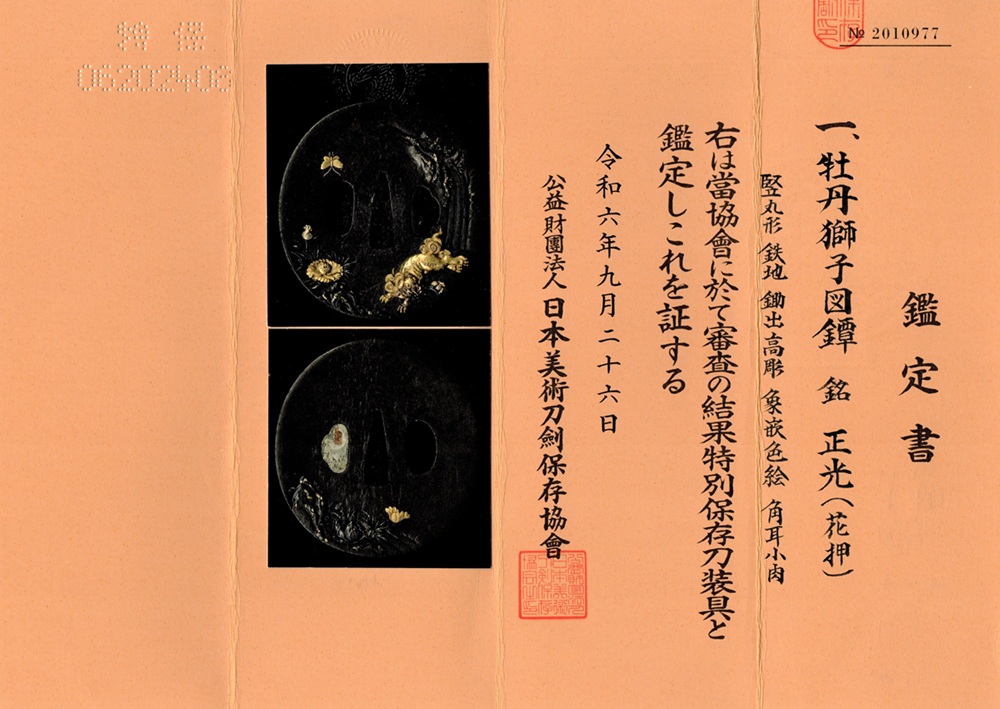 № 2010977
鑑定書
一、牡丹獅子図鐔　銘　正光（花押）
竪丸形　鉄地　鋤出高彫　象嵌色絵　角耳小肉
右は當協會に於て審査の結果特別保存刀装具と
鑑定しこれを証する
令和六年九月二十六日
公益財團法人日本美術刀劍保存協會
特保